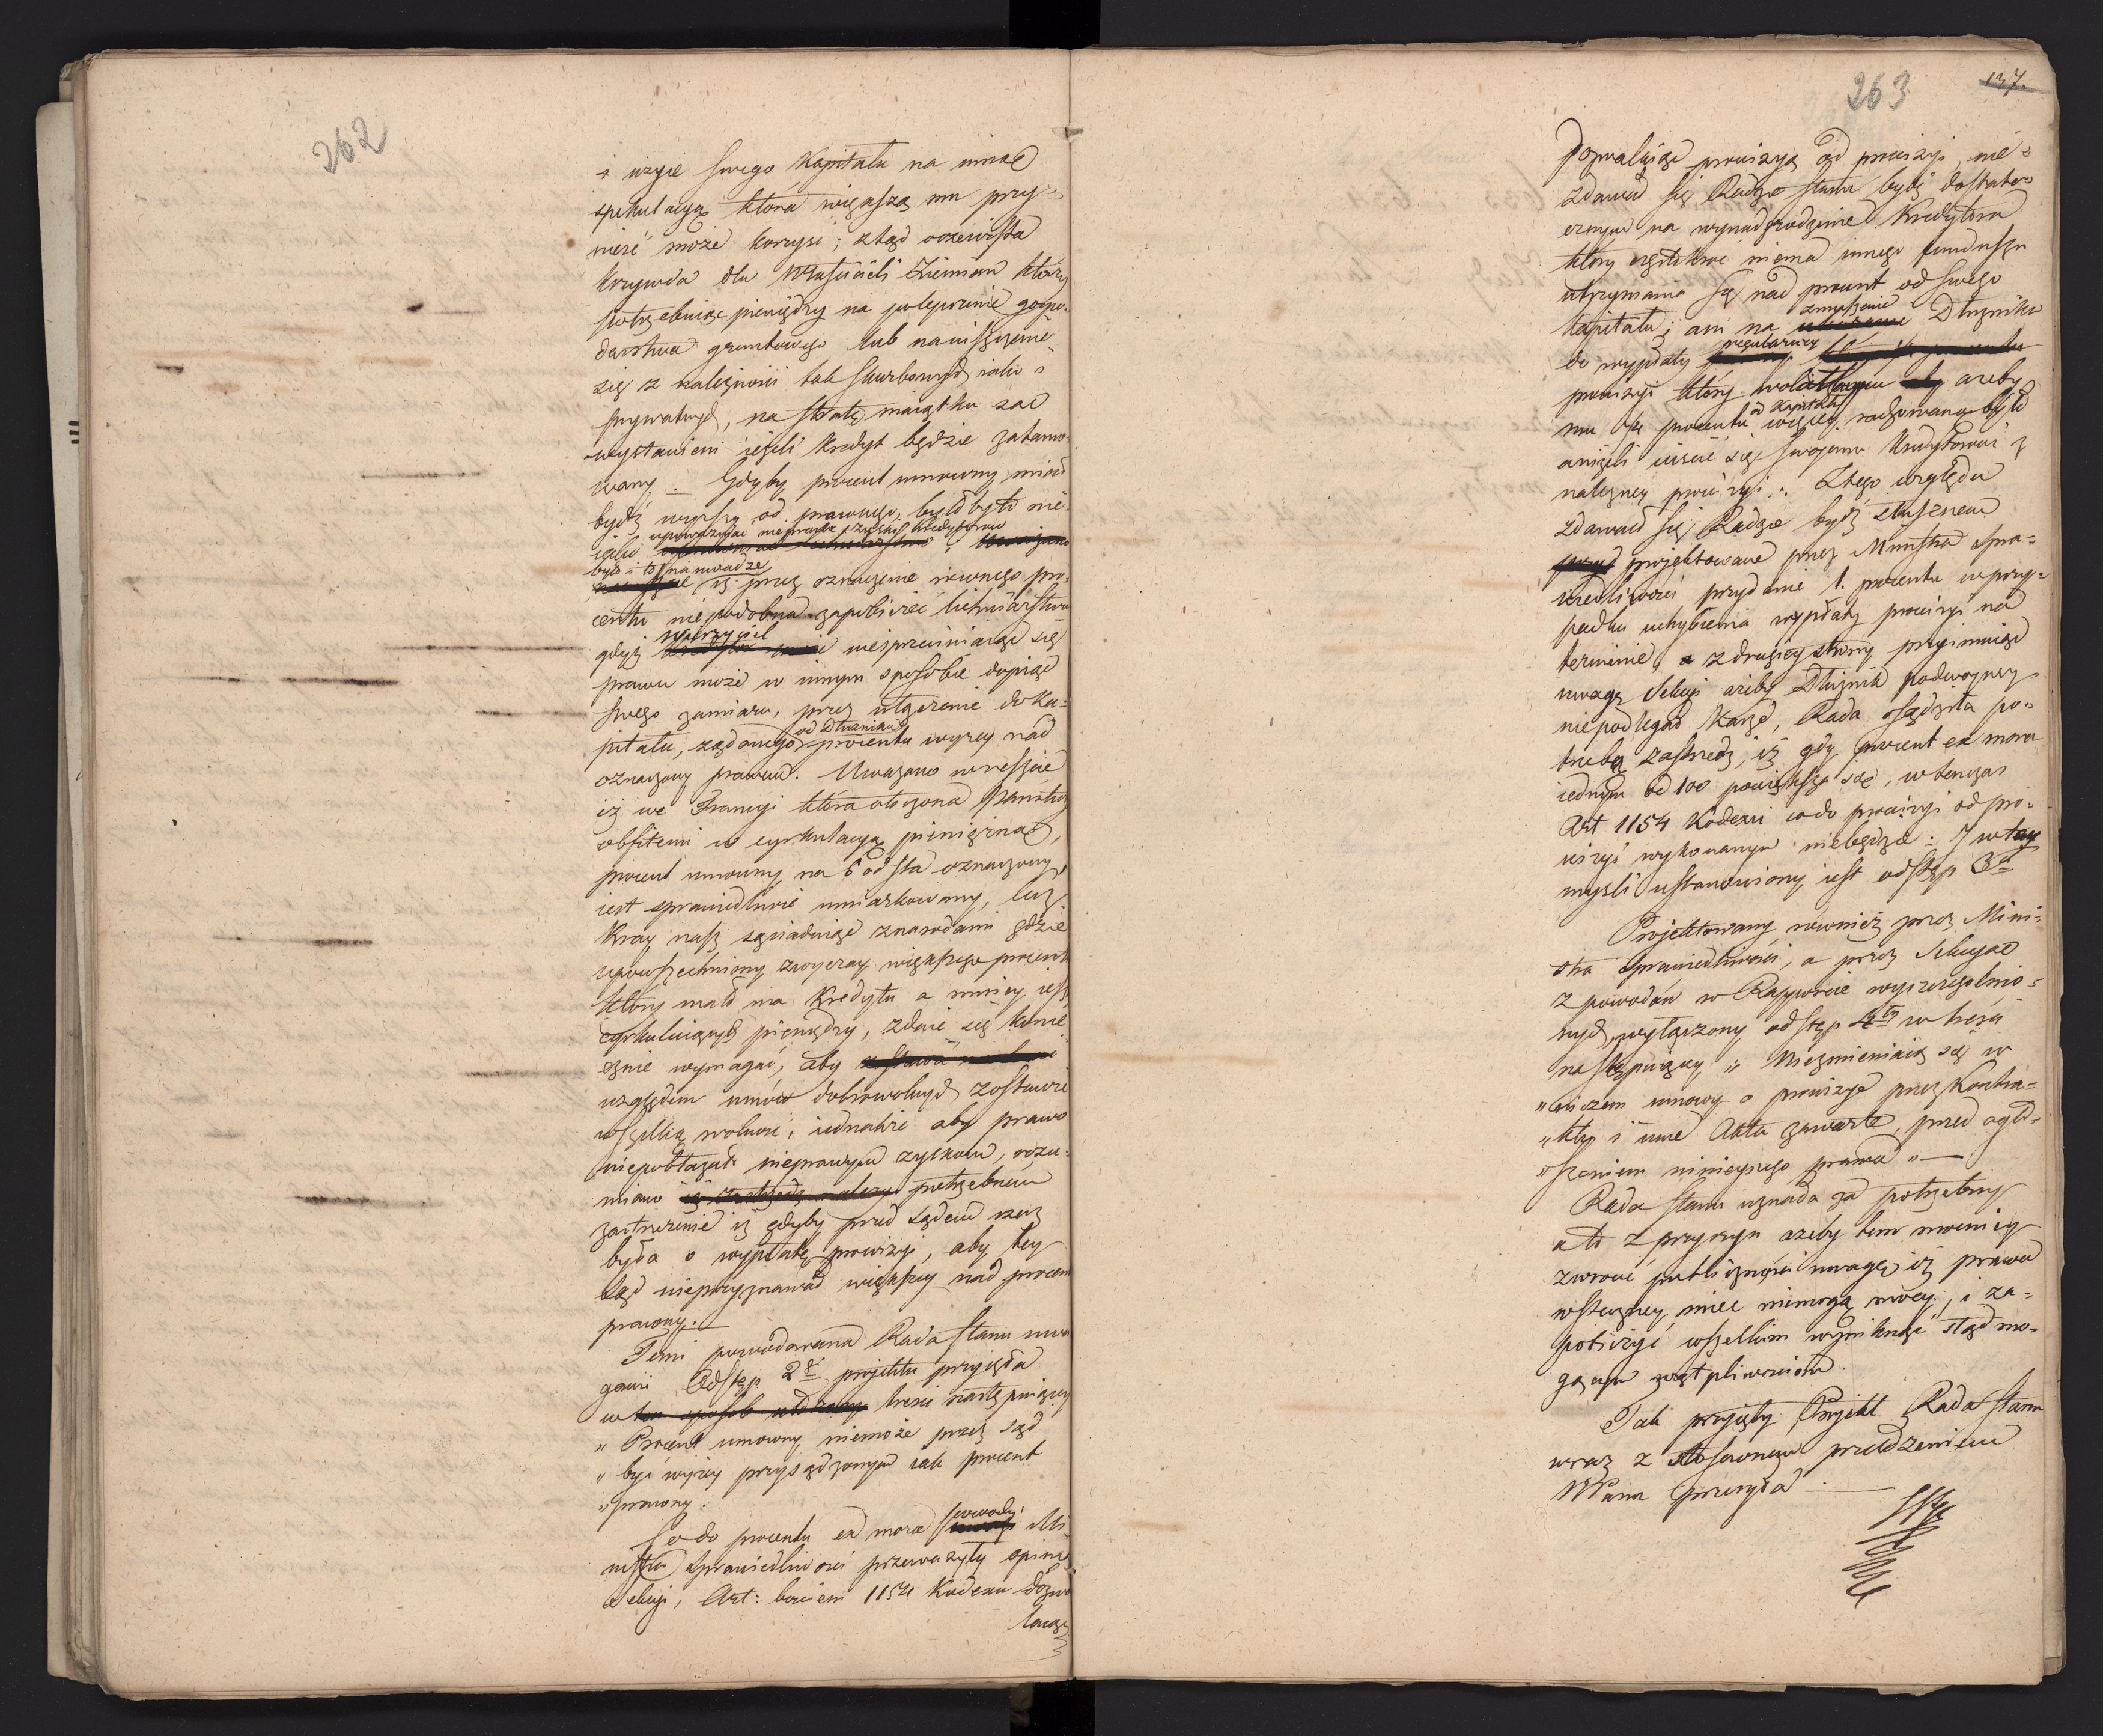 262
i użyie swego Kapitału na inną
spekulacyą która większą mu przy=
nieść może korzyść; ztąd oczewista
krzywda dla Właścicieli Ziemian którzy
potrzebuiąc pieniędzy na polepszenie gospo=
darstwa gruntowego lub na uiszczenie
się z należności tak skarbowych iako i
prywatnych, na stratę maiątku są
wystawieni ieżeli kredyt będzie zatamo=
wany. Gdyby procent umowny miał
bydź wyższy od prawnego, byłoby to nie
upoważniać nieprawe zyski Kredytorów
iako
było i to na uwadze
iż przez oznaczenie pewnego pro=
centu niepodobna zapobiedz lichwiarstwu
wierzyciel
gdyż niesprzeciwiaiąc się
prawu może w innym sposobie dopiąć
swego zamiaru, przez wliczenie do ka=
od Dłużnika
pitału, żądanego procentu wyżey nad
oznaczony prawem. Uważano wreszcie
iż we Francyi która otoczona Państwy
obfitemi w cyrkulacyą pieniężną,
procent umowny na 6 od sta oznaczony,
iest sprawiedliwie umiarkowany, lecz
Kray nasz sąsiaduiąc z narodami gdzie
upowszechniony zwyczay większego procentu
który mało ma Kredytu a mniey iest
cyrkuluiących pieniędzy, zdaie się konie=
cznie wymagać, aby
względem umów dobrowolnych zostawić
wszelką wolność, iednakże aby prawo
niepobłażało nieprawym zyskom, rozu=
miano iż zastrzedz należy potrzebnem
zastrzeżenie iż gdyby przed sądem rzecz
była o wypłatę prowizyi, aby tey
Sąd nieprzyznawał większey nad procent
prawny.
Temi powodowana Rada Stanu uwa
gami Odstęp 2gi projektu przyięła
w ten sposób treści następuiącey
„ Procent umowny niemoże przez Sąd
„ być wyżey przysądzonym iak procent
„ prawny.
Co do procentu ex mora powody Mi
nistra Sprawiedliwości przeważyły opinią
Sekcyi, Art: bowiem 1154 Kodexu dozwa
laiąc
263
137.
Pozwalaiąc prowizyą od prowizyi, nie=
zdawał się Radzie Stanu bydź dostate=
cznym na wynadgrodzenie Kredytora
który częstokroć niema innego funduszu
utrzymania się nad procent od swego
zmuszenie
kapitału; ani na Dłużnika
regularney
do wypłaty
prowizyi który woli ażeby
od kapitału
mu się procentu więcey rachowano było
aniżeli uiścić się swojemu Kredytorowi z
należney prowizyi. Z tego względu
zdawało się Radzie bydź słusznem
projektowane przez Ministra Spra=
wiedliwości przydanie 1. procentu w przy=
padku uchybienia wypłaty prowizyi na
terminie, a z drugiey strony przyimuiąc
uwagę Sekcyi ażeby Dłużnik podwoyney
niepodlegał karze, Rada osądziła po=
trzebą zastrzedz, iż gdy procent ex mora
iednym od 100 powiększa się, wtenczas
Art 1154 Kodexu co do prowizyi od pro=
wizyi wykonanym niebędzie. I w tey
myśli ustanowiony iest odstęp 3ci
Projektowany również przez Mini=
stra Sprawiedliwości, a przez Sekcyą
z powodów w Rapporcie wyszczególnio=
nych, wyłączony odstęp 4ty w treści
następuiącey „ Niezmieniaią się w
„ niczem umowy o prowizye przez Kontra=
„ kty i inne Akta zawarte, przed ogło=
„ szeniem ninieyszego prawa „ —
Rada Stanu uznała za potrzebny
a to z przyczyn ażeby tem mocniey
zwrócić publiczności uwagę iż prawa
wsteczney mieć niemogą mocy, i za=
pobiedz wszelkim wyniknąć ztąd mo=
gącym wątpliwościom.
Tak przyięty Projekt Rada Stanu
wraz z stosownem przełożeniem
WPanu przesyła —